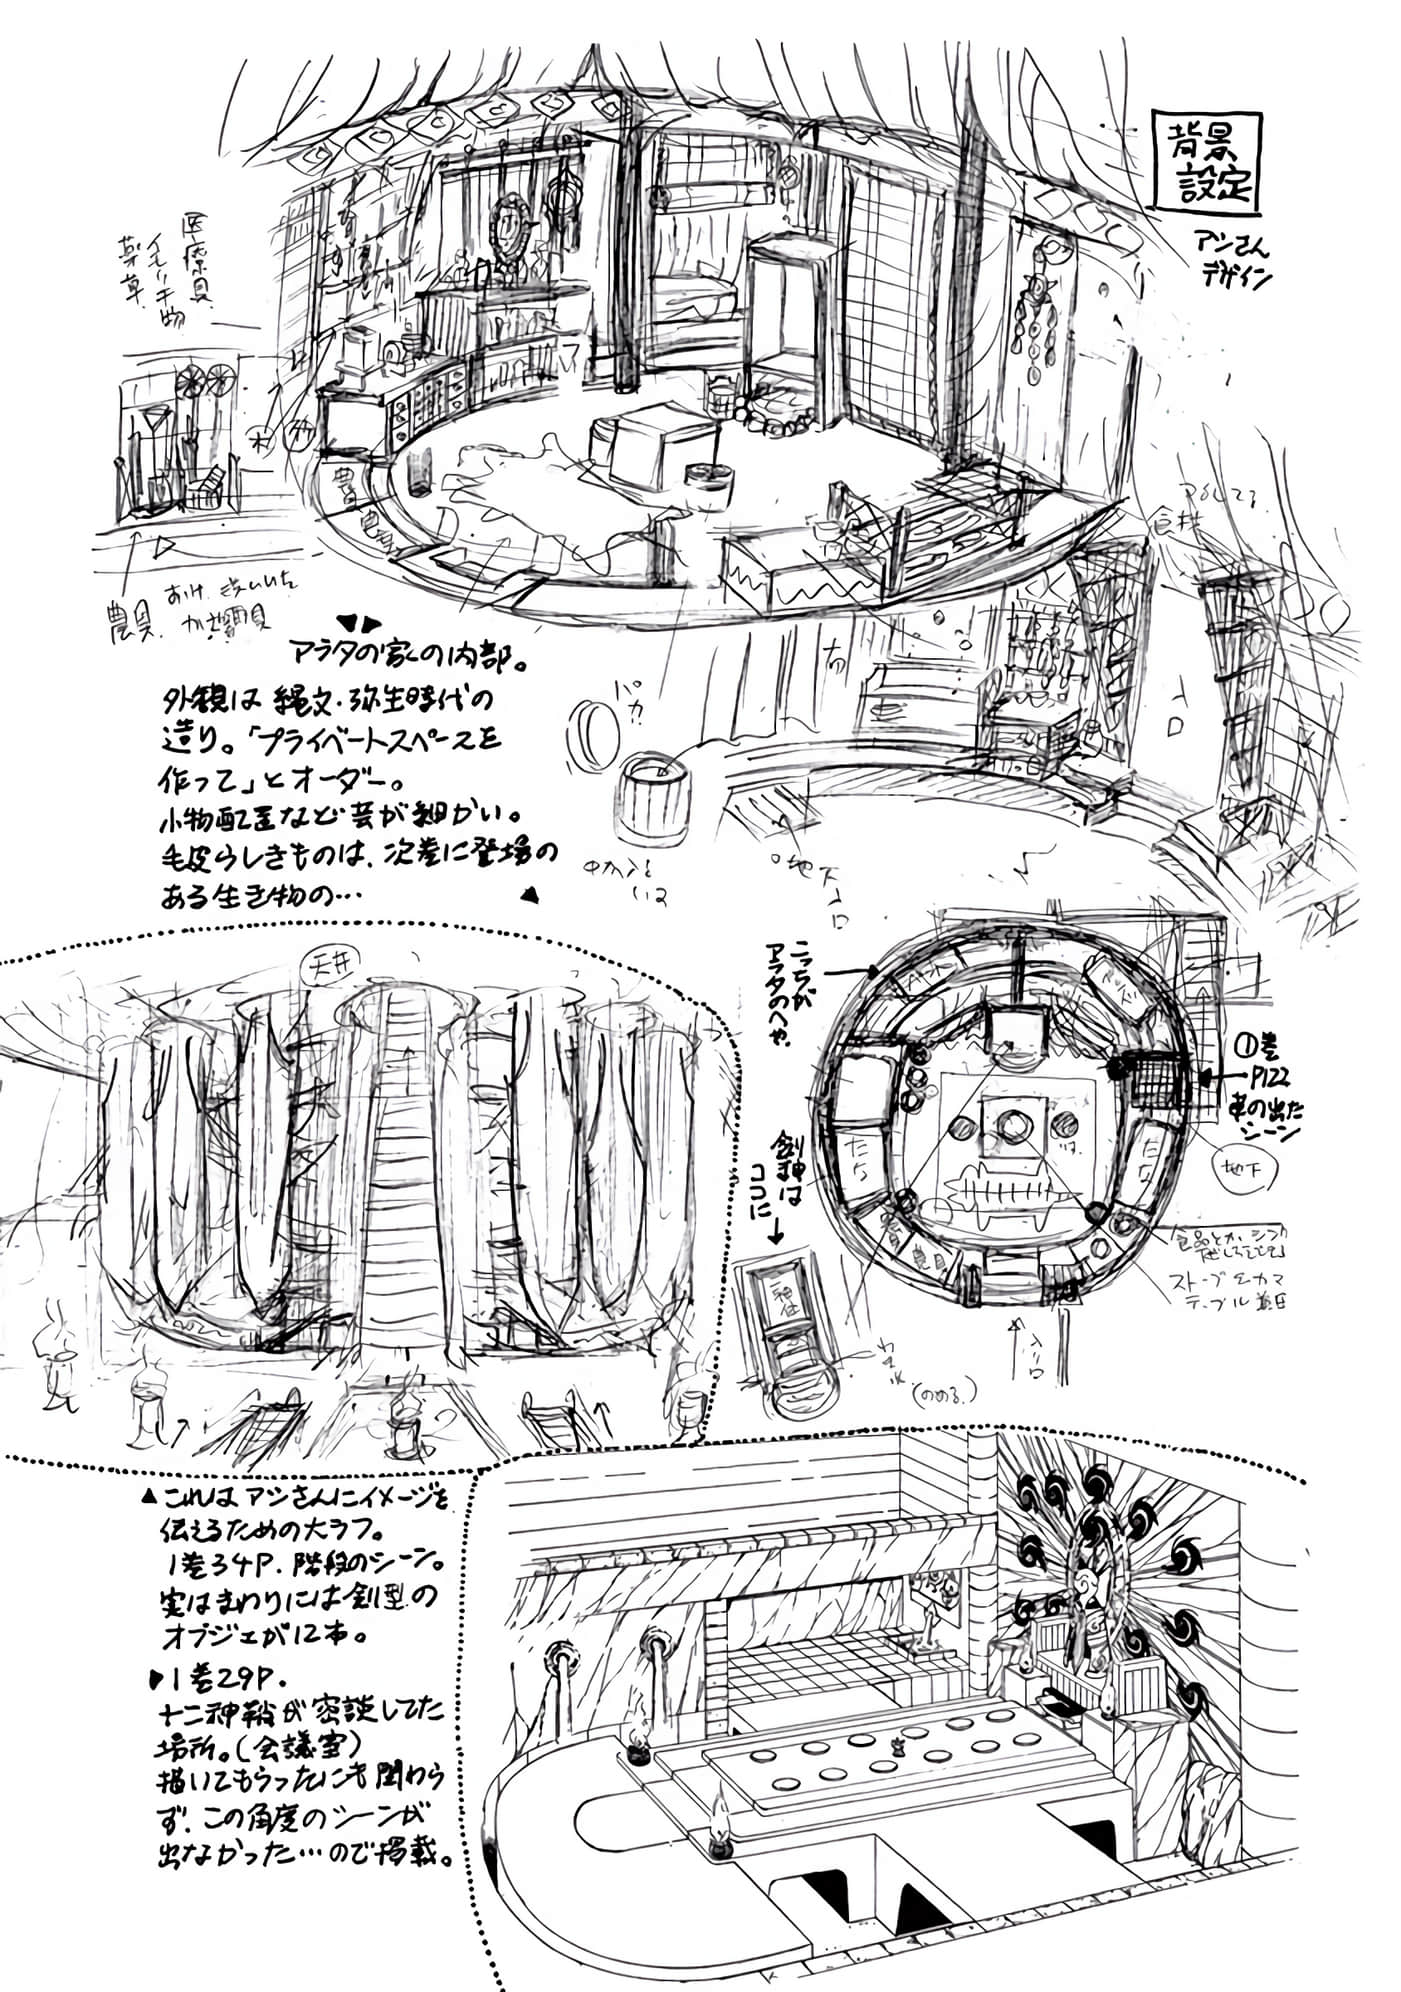 背景
設定
アシさん
デザイン
医療具
薬草
農具
アラタの家の内部。
外観は縄文・弥生時代の
造り。「プライベートスペースを
作って」とオーダー。
小物配置など芸が細かい。
毛皮らしきものは、次巻に登場の
ある生き物の…
食材
入口
パカッ
地下
入口
天井
こっちが
アラタのへや。
①巻
P122
革の出た
シーン
地下
たな
たな
農具
ストーブ&カマ
テーブル兼用
入口
劍神は
ココに
(のめる。)
▲これはアシさんにイメージを
伝えるための大ラフ。
1巻34P.階段のシーン。
実はまわりには劍型の
オブジェが12本。
▶1巻29P.
十二神鞘が密談してた
場所。(会議室)
描いてもらったにも関わら
ず、この角度のシーンが
出なかった…ので掲載。